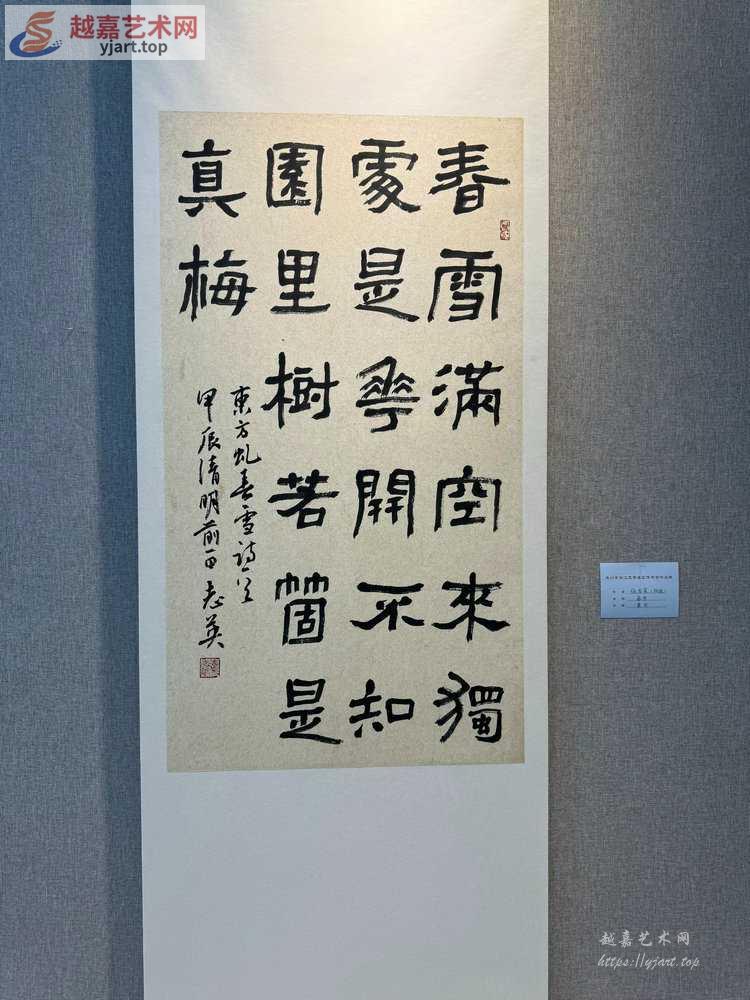 越嘉艺术网
yjart.top
春雪滿空來獨
處是華開不知
園里樹若箇是
真梅
東方虬春雪詩一首
甲辰清明前一日志英
越嘉艺术网
https://yjart.top